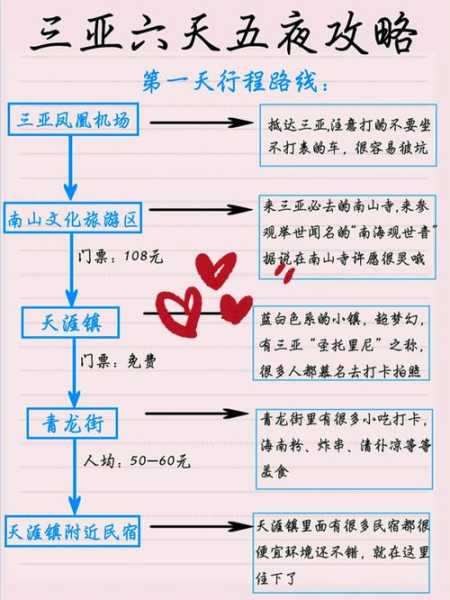 三亚六天五夜攻略
第一天行程路线：
三亚凤凰机场
抵达三亚,注意打的不要坐
不打表的车，很容易被坑
南山文化旅游区
来三亚必去的南山寺,来参
观举世闻名的“南海观世音”
据说在南山寺许愿很灵哦
门票：108元
天涯镇
蓝白色系的小镇，超梦幻，
有三亚“圣托里尼”之称，
很多人都慕名去打卡拍照
门票：免费
青龙街
青龙街里有很多小吃打卡，
海南粉、炸串、清补凉等等
美食
人均：50—60元
天涯镇附近民宿
天涯镇里面有很多民宿都很
便宜环境还不错，就在这里
住下了